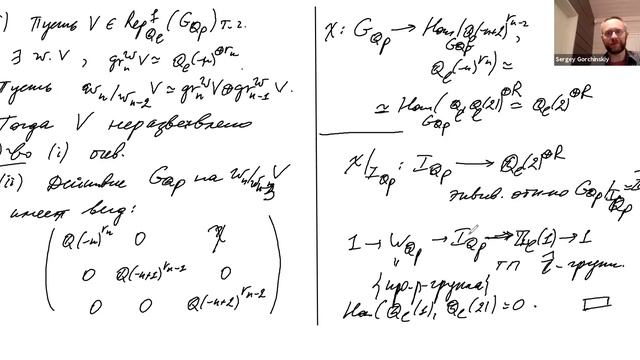 Пусть V ∈ Rep^f_{Q_ℓ}(G_{Q_p}) т.г.
∃ W.V, gr^W_n V ≃ Q_ℓ(-n)^{⊕r_n}.
Пусть W_n/W_{n-2} V ≃ gr^W_n V ⊕ gr^W_{n-1} V.
Тогда V неразветвлено
(i) очев.
(ii) Действие G_{Q_p} на W_n/W_{n-3} V
имеет вид:
( Q(-n)^{r_n} 0 χ
0 Q(-n+1)^{r_{n-1}} 0
0 0 Q(-n+2)^{r_{n-2}} )
χ: G_{Q_p} → Hom_{G_{Q_p}}(Q_ℓ(-n+2)^{r_{n-2}},
Q_ℓ(-n)^{r_n}) ≃
≃ Hom_{G_{Q_p}}(Q_ℓ, Q_ℓ(2))^{⊕R} ≃ Q_ℓ(2)^{⊕R}
χ|_{I_{Q_p}}: I_{Q_p} → Q_ℓ(2)^{⊕R}
эквив. отн-но G_{Q_p}/I_{Q_p}
1 → W_{Q_p} → I_{Q_p} → Z_ℓ(1) → 1
{про-p-группа}
Hom(Q_ℓ(1), Q_ℓ(2)) = 0.
Sergey Gorchinskiy